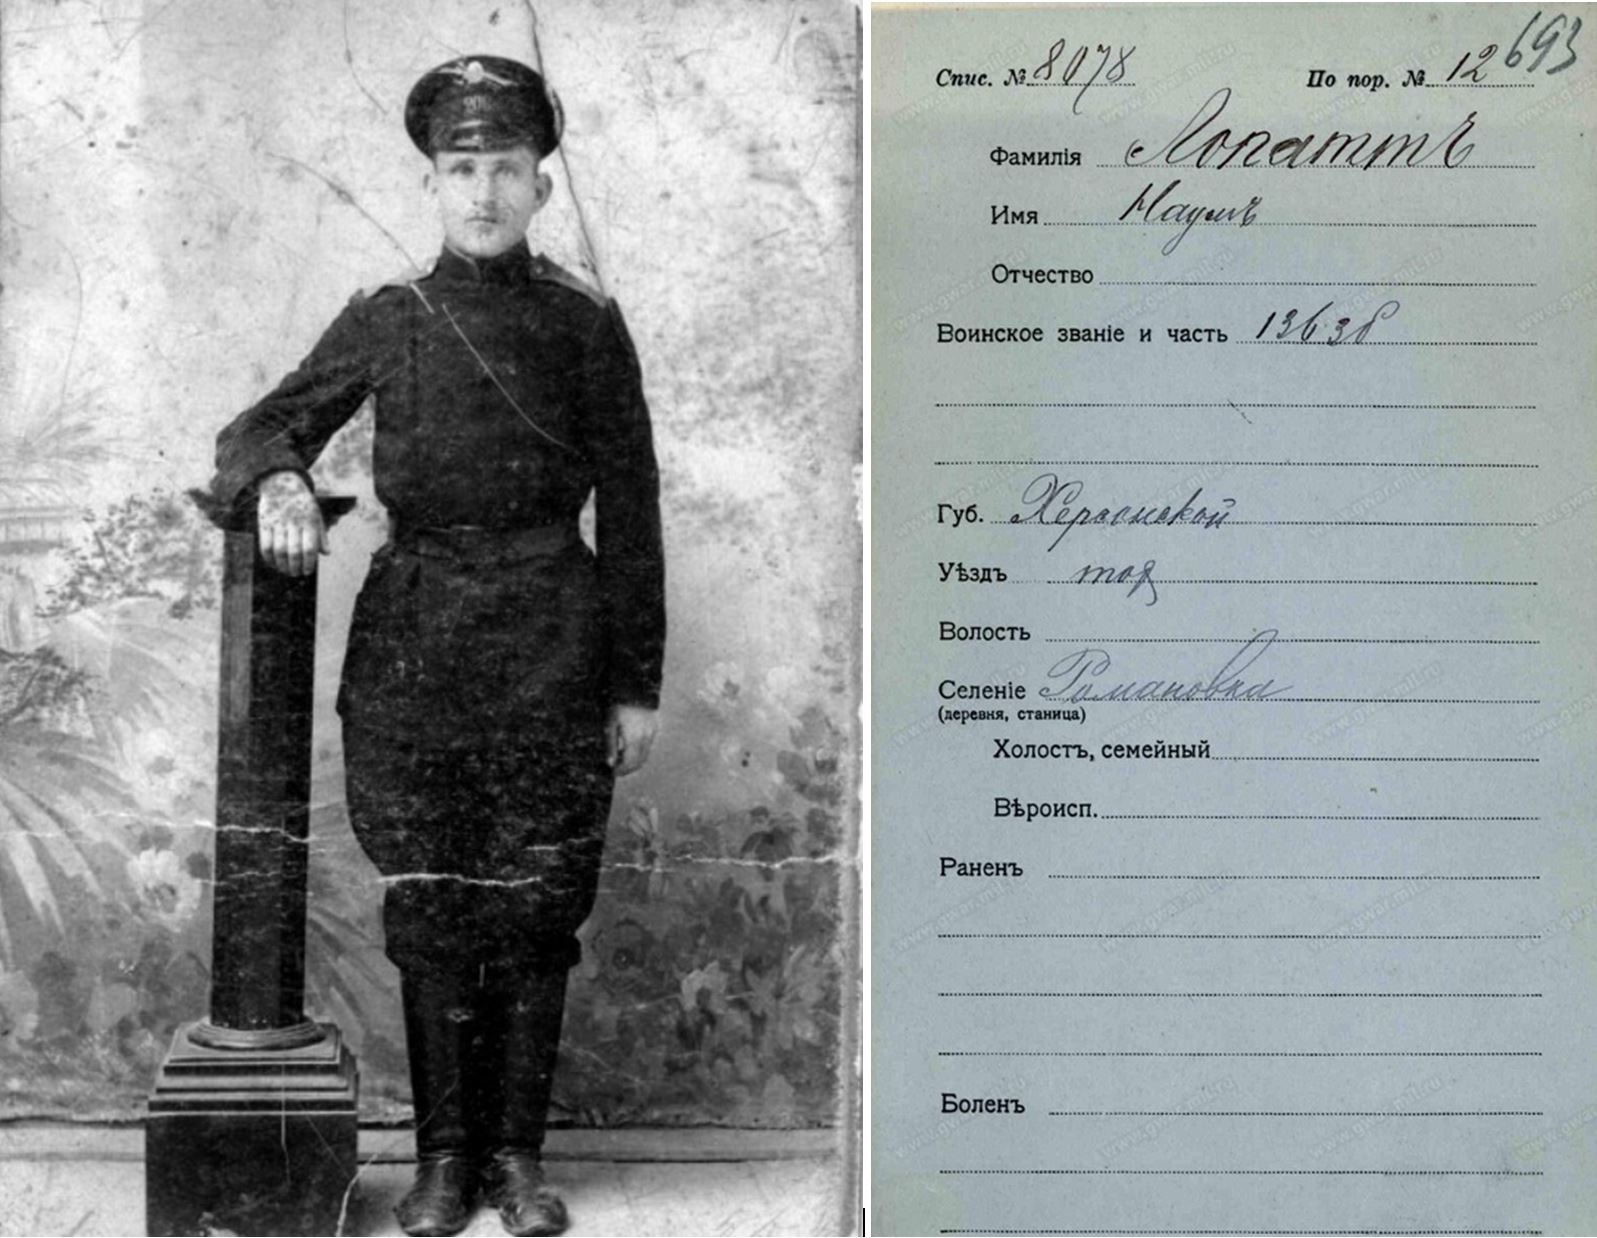 693
Спис. № 8078 По пор. № 12
Фамилія Лопаттъ
Имя Наумъ
Отчество
Воинское званіе и часть 13636
Губ. Херсонской
Уѣздъ тож
Волость
Селеніе Романовка
(деревня, станица)
Холостъ, семейный
Вѣроисп.
Раненъ
Боленъ
www.gwar.mil.ru